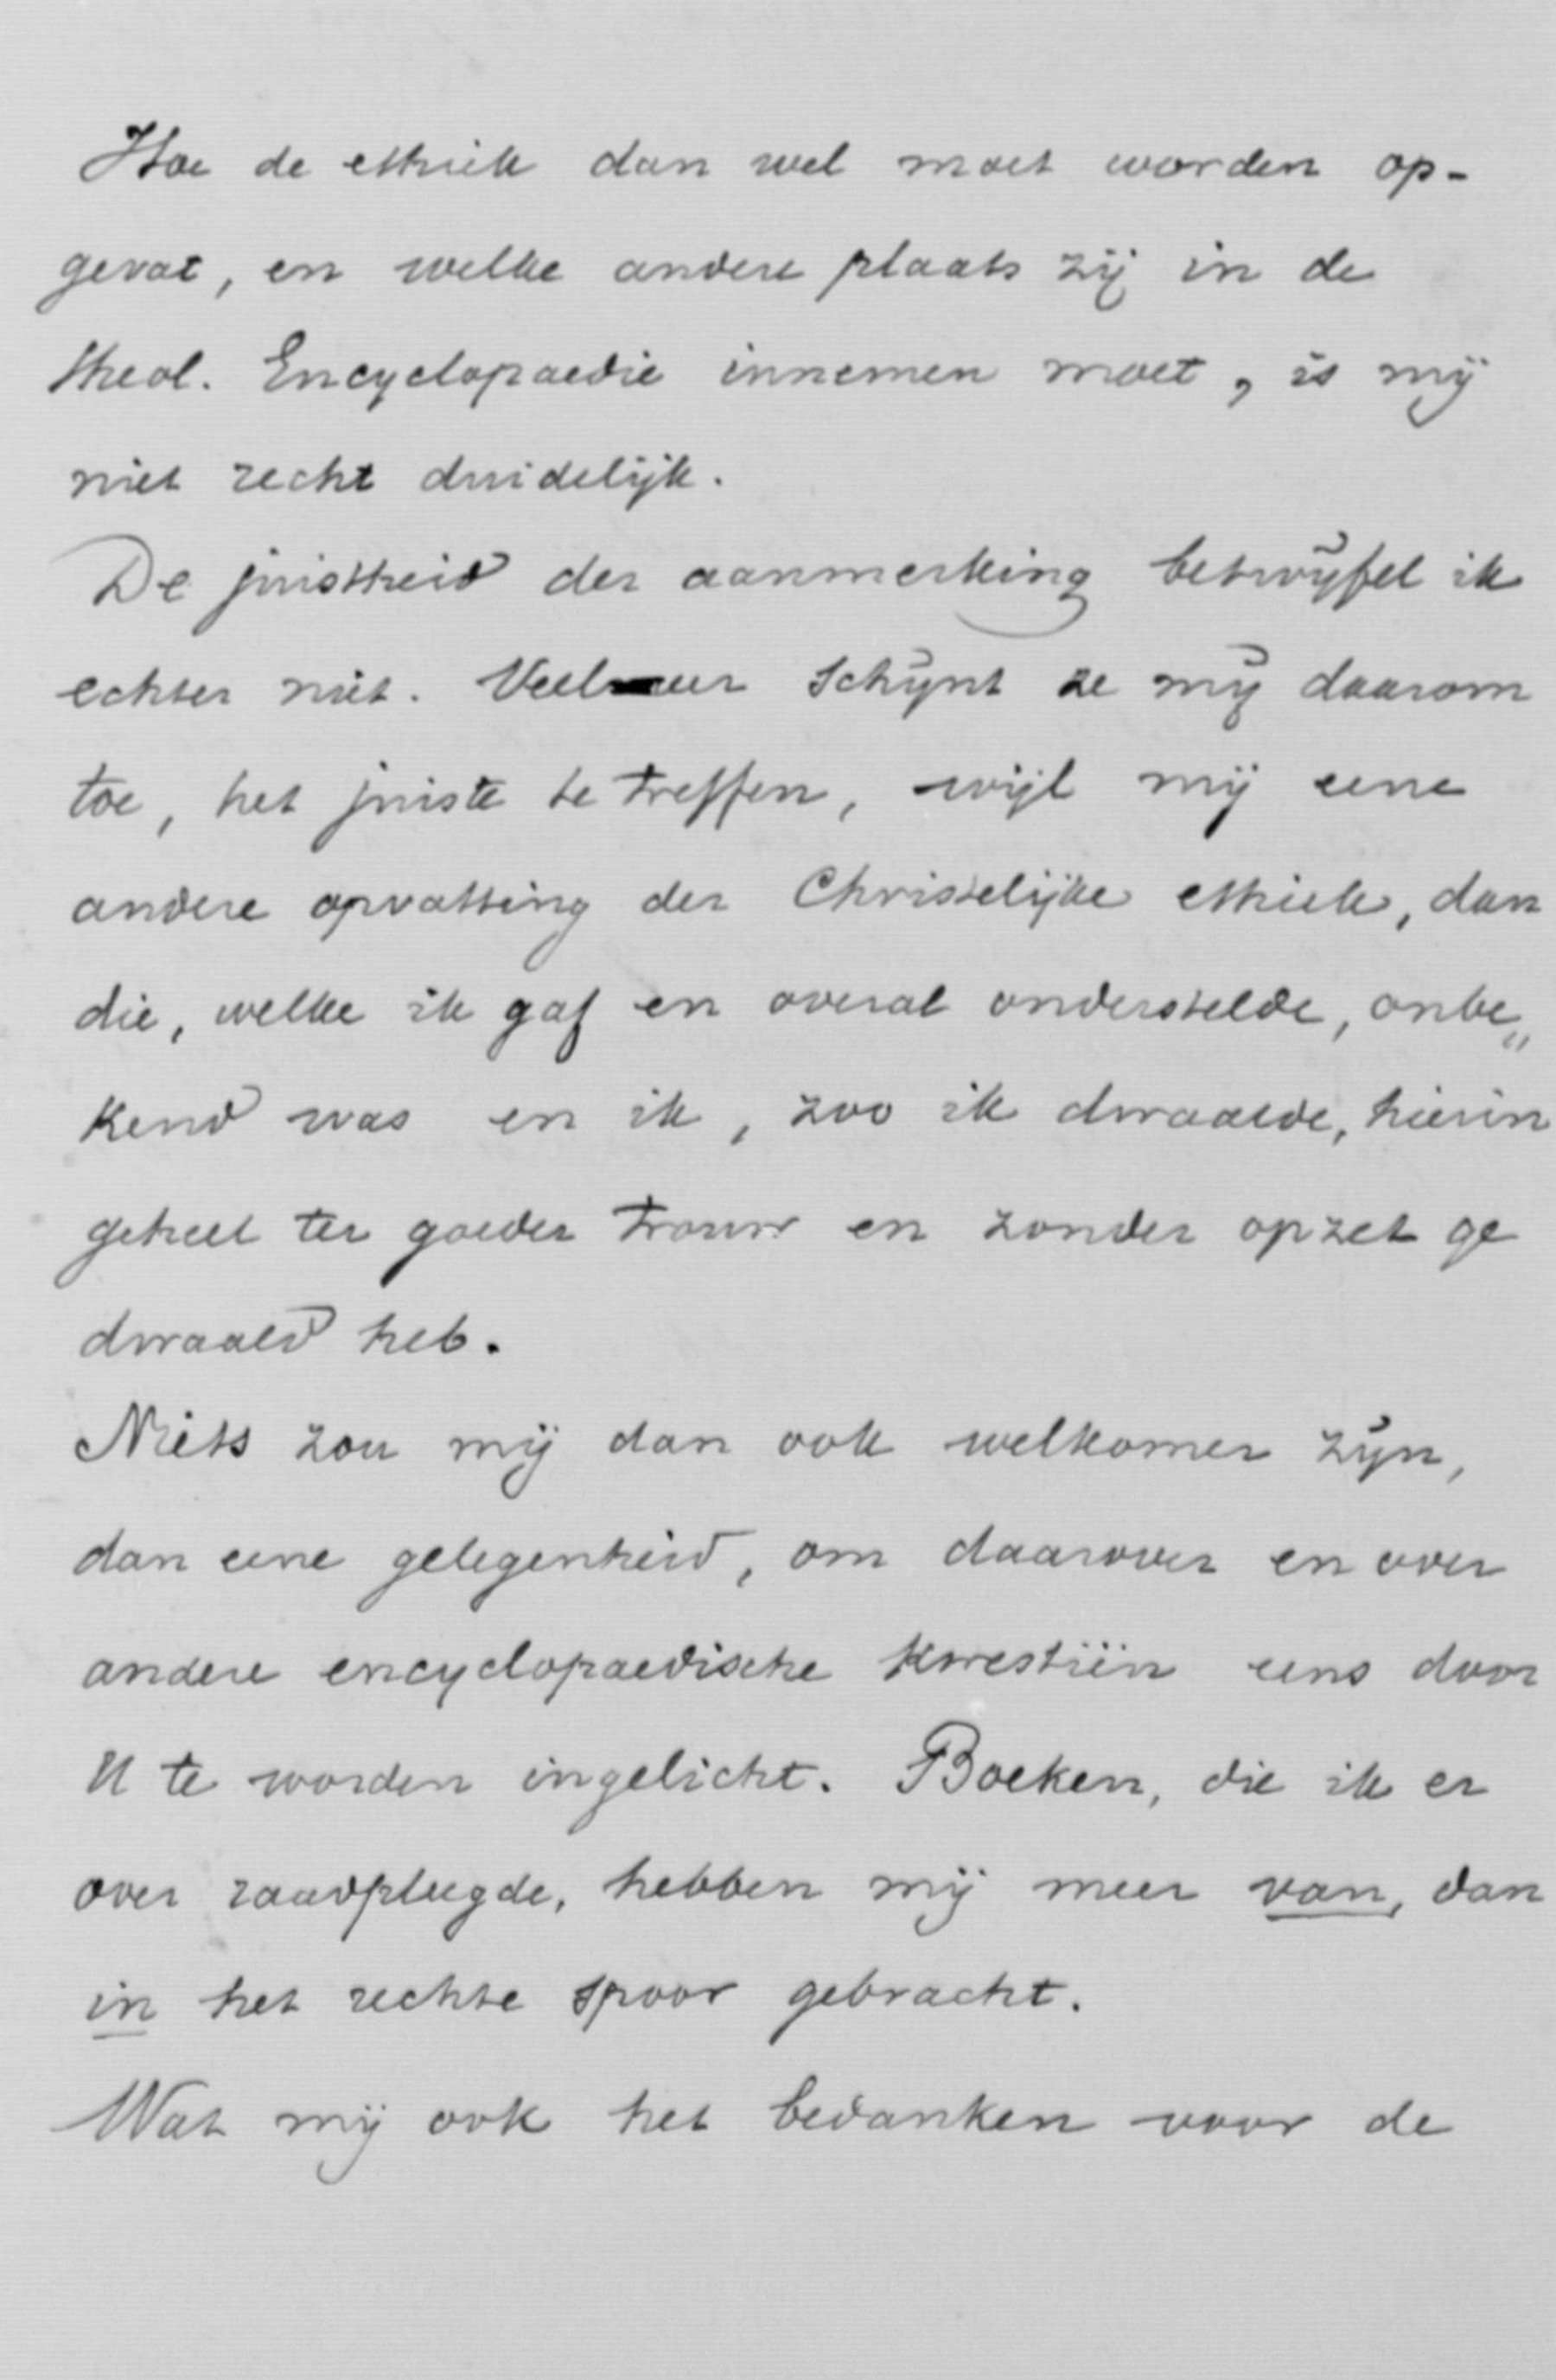 Hoe de ethiek dan wel moet worden op-
gevat, en welke andere plaats zij in de
theol. Encyclopaedie innemen moet, is mij
niet recht duidelijk.
De juistheid der aanmerking betwijfel ik
echter niet. Veelmeer schijnt ze mij daarom
toe, het juiste te treffen, wijl mij eene
andere opvatting der Christelijke ethiek, dan
die, welke ik gaf en overal onderstelde, onbe„
kend was en ik, zoo ik dwaalde, hierin
geheel ter goeder trouw en zonder opzet ge
dwaald heb.
Niets zou mij dan ook welkomer zijn,
dan eene gelegenheid, om daarover en over
andere encyclopaedische kwestiën eens door
U te worden ingelicht. Boeken, die ik er
over raadpleegde, hebben mij meer van, dan
in het rechte spoor gebracht.
Wat mij ook het bedanken voor de